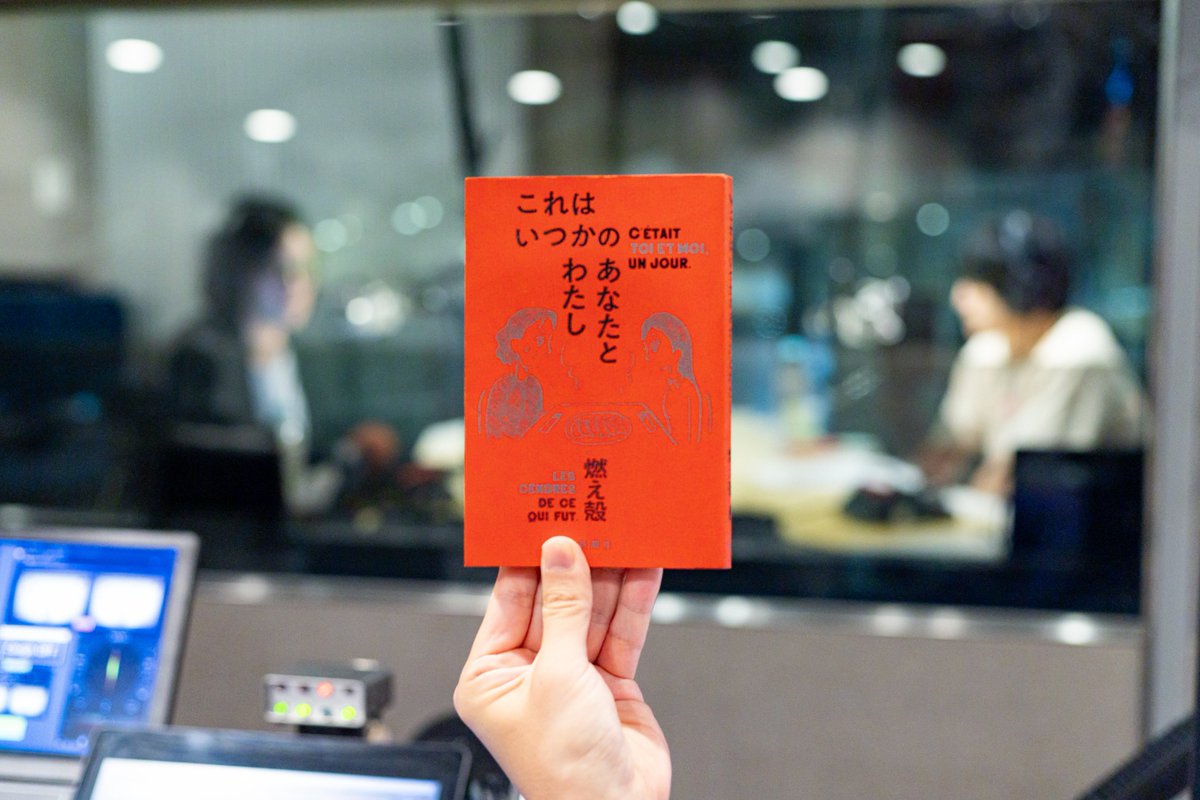 これは
いつかの
あなたと
わたし
C'ÉTAIT
TOI ET MOI,
UN JOUR.
燃え殻
LES
CENDRES
DE CE
QUI FUT.